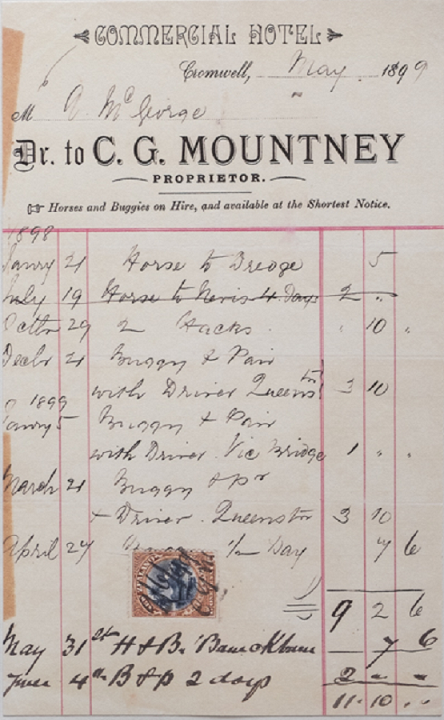 COMMERCIAL HOTEL
Cromwell, May 1899
M A. McGeorge "
Dr. to C. G. MOUNTNEY
PROPRIETOR.
Horses and Buggies on Hire, and available at the Shortest Notice.
1898
Janry 21 Horse to Dredge 5
July 19 Horse to Nevis 4 Days 2 "
Octbr 29 2 Hacks. " 10 "
Decbr 21 Buggy & Pair
with Driver Queenstn 3 10
1899
Janry 5 Buggy & Pair
with Driver. Vic Bridge 1 " "
March 21 Buggy & Pr
& Driver. Queenstn 3 10
April 27 1/2 Day 7 6
9 2 6
May 31st H & B. Bannockburn 7 6
June 4th B & P 2 days 2 - -
11 - 10 " "